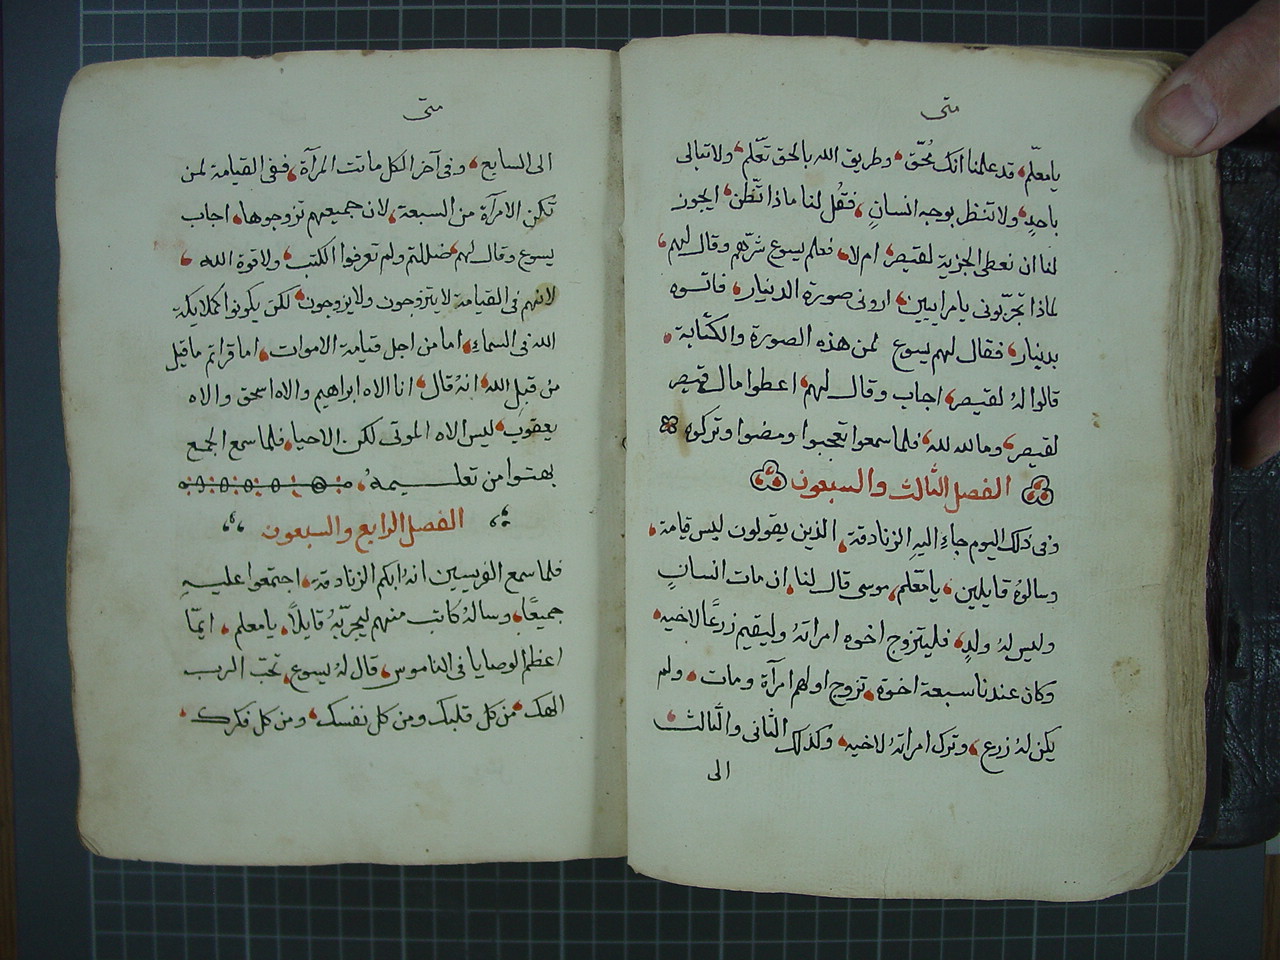 متى
يا معلّم، قد علمنا انك مُحّق، وطريق الله بالحق تعّلم، ولا تبالى
باحدٍ، ولا تنظر بوجه انسانٍ، فقُل لنا ماذا تّظن، ايجوز
لنا ان نعطى الجزية لقيصر، ام لا، فعلم يسوع شرّهم وقال لهم،
لماذا تجرّبونى يا مراييين، ارونى صورة الدينار، فاتوه
بدينار، فقال لهم يسوع لمن هذه الصورة والكتابة،
قالوا لهُ لقيصر، اجاب وقال لهم، اعطوا مال قيصر
لقيصر، وما لله لله، فلما سمعوا تعجبوا ومضوا وتركوه
الفصل الثالث والسبعون
وفى ذلك اليوم جاءِ اليهِ الزنادقة، الذين يقولون ليس قيامة،
وسالوهُ قايلين، يا معّلم، موسى قال لنا، ان مات انسانٍ
وليس لهُ ولدٍ، فليتزوج اخوه امراتهُ وليقيم زرعًا لاخيه،
وكان عندنا سبعة اخوة، تزوج اولهم امرآة ومات، ولم
يكن لهُ زرع، وترك امراتهُ لاخيه، وكذلك الثانى والثالث،
الى
متى
الى السابع، وفى آخر الكل ماتت المرآة، ففى القيامة لمن
تكن الامرآة من السبعة، لان جميعهم تزوجوها، اجاب
يسوع وقال لهم، ضللتم ولم تعرفوا الكتب، ولا قوة الله،
لانهم فى القيامة لا يتزوجون ولا يزوجون، لكن يكونوا كملايكة
الله فى السماءِ، اما من اجل قيامة الاموات، اما قراتم ما قيل
من قبل الله، انهُ قال، انا الاه ابراهيم والاه اسحق والاه
يعقوب، ليس الاه الموتى لكن الاحيا، فلما سمع الجمع
بهتوا من تعليمهُ،
الفصل الرابع والسبعون
فلما سمع الفريسيين انهُ ابكم الزنادقة، اجتمعوا عليهِ
جميعًا، وسالهُ كاتب منهم ليجربّهُ قايلاً، يا معلم، ايمّا
اعظم الوصايا فى الناموس، قال لهُ يسوع، تحّب الرب
الهك، من كل قلبك ومن كل نفسك، ومن كل فكرك،